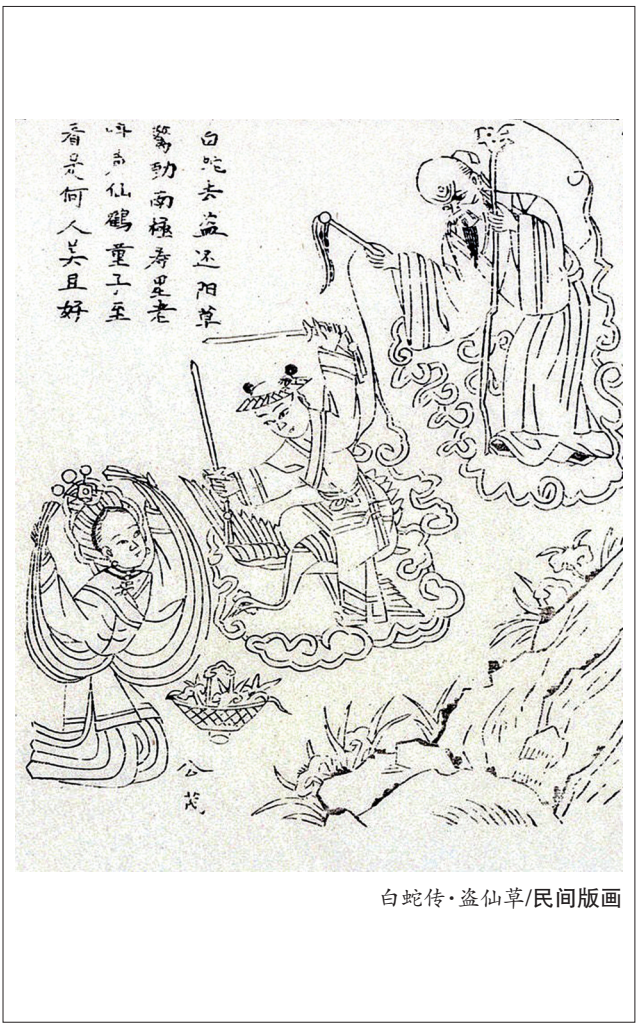 白蛇去盗还阳草
驚動南極寿星老
仙鶴童子至
看是何人美且好
公茂
白蛇传·盗仙草/民间版画